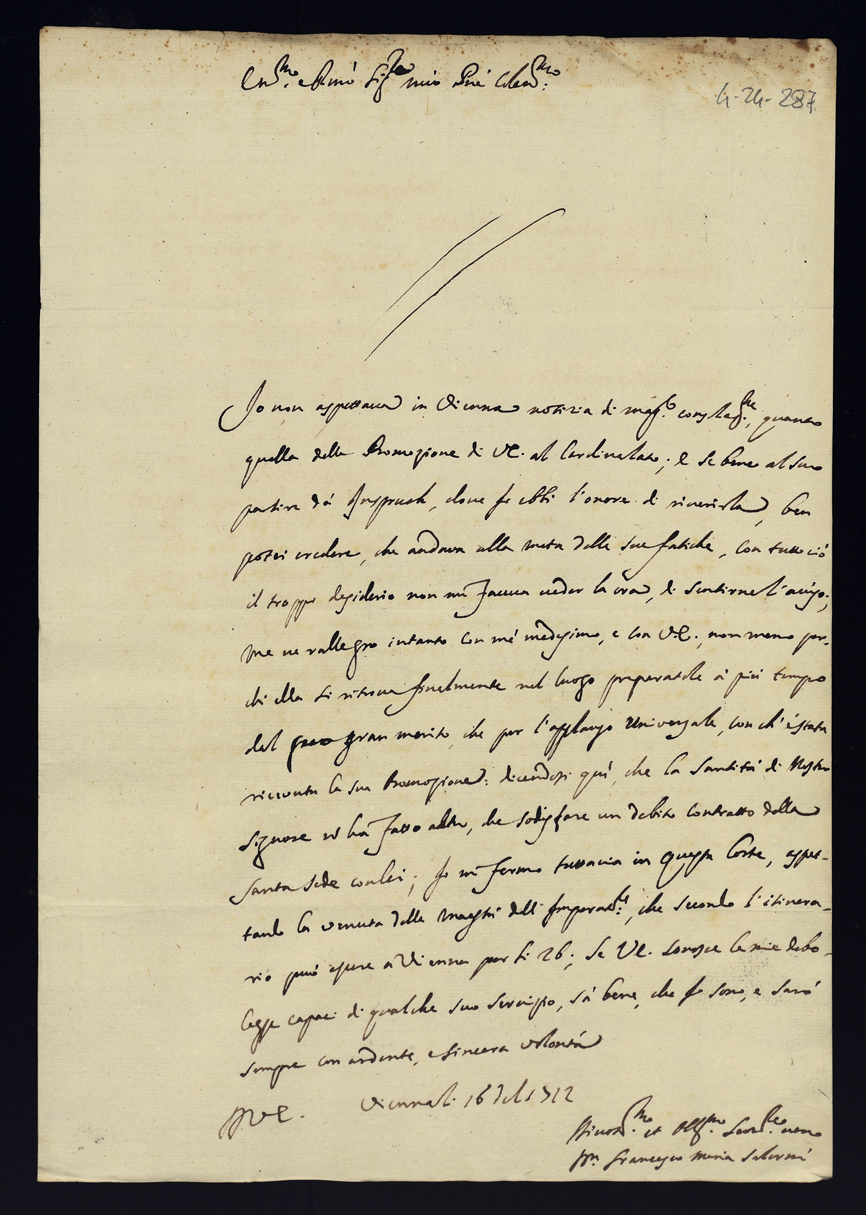 Em.mo e Rmo Sig.re mio Pne Colen.mo
4-24-287
Io non aspettava in Vienna notizia di mag.r consola.ne, quanto
quella della Promozione di V.E. al Cardinalato; e se bene al suo
partire da Inspruch, dove io ebbi l'onore di riverirla, ben
potei credere, che andava alla meta delle sue fatiche, con tutto ciò
il troppo desiderio non mi faceva veder la ora, di sentirne l'aviso;
me ne rallegro intanto con me medesimo, e con V.E., non meno per-
chi ella si ritrova finalmente nel luogo preparatole à più tempo
dal gran merito, che per l'applauso universale, con ch'è stata
ricevuta la sua Promozione: dicendosi quì, che la Santità di Nostro
Signore nò hà fatto altro, che sodisfare un debito contratto dalla
Santa Sede con lei; Io mi fermo tuttavia in questa Corte, aspet-
tando la venuta della Maestà dell'Imperat.re, che secondo l'itinera-
rio può essere à Vienna per li 26; Se V.E. conosce le mie debo-
lezze capaci di qualche suo servizio, sà bene, che io sono, e sarò
sempre con ardente, e sincera volontà
D V.E. Vienna li 16 del 1712
Divot.mo et Obl.mo Serv.re vero
Francesco Maria